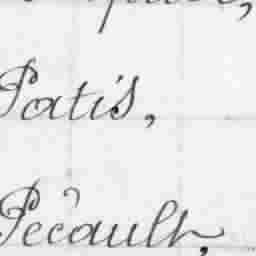 Patis,
Pecault,